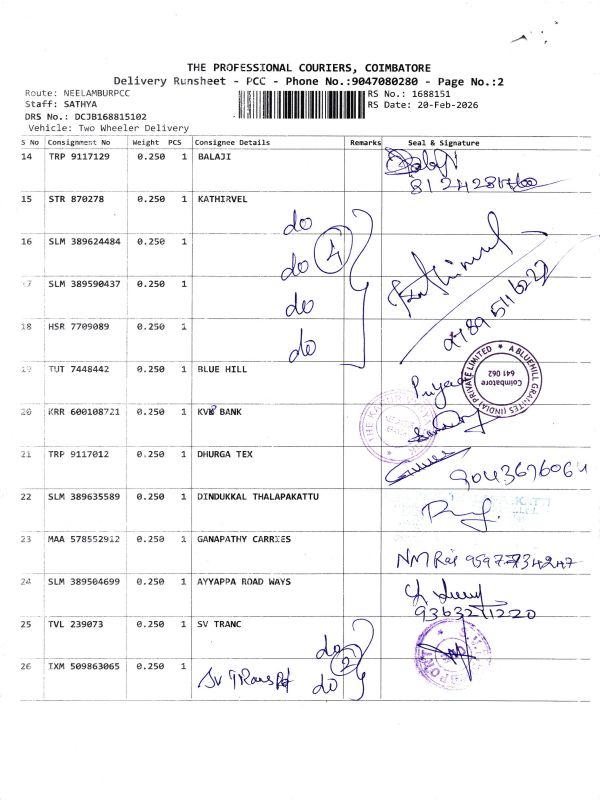 THE PROFESSIONAL COURIERS, COIMBATORE
Delivery Runsheet - PCC - Phone No.:9047080280 - Page No.:2
Route: NEELAMBURPCC RS No.: 1688151
Staff: SATHYA RS Date: 20-Feb-2026
DRS No.: DCJB168815102
Vehicle: Two Wheeler Delivery
S No Consignment No Weight PCS Consignee Details Remarks Seal & Signature
14 TRP 9117129 0.250 1 BALAJI
15 STR 870278 0.250 1 KATHIRVEL
do
16 SLM 389624484 0.250 1
do 4
17 SLM 389590437 0.250 1
do
18 HSR 7709089 0.250 1
do
19 TUT 7448442 0.250 1 BLUE HILL
A BLUEHILL GRANITES (INDIA) PRIVATE LIMITED
Coimbatore
641 062
20 KRR 600108721 0.250 1 KVB BANK
21 TRP 9117012 0.250 1 DHURGA TEX
9043676064
22 SLM 389635589 0.250 1 DINDUKKAL THALAPAKATTU
23 MAA 578552912 0.250 1 GANAPATHY CARRIES
NM Raj
24 SLM 389504699 0.250 1 AYYAPPA ROAD WAYS
9363211220
25 TVL 239073 0.250 1 SV TRANC
do 2
26 IXM 509863065 0.250 1 SV do